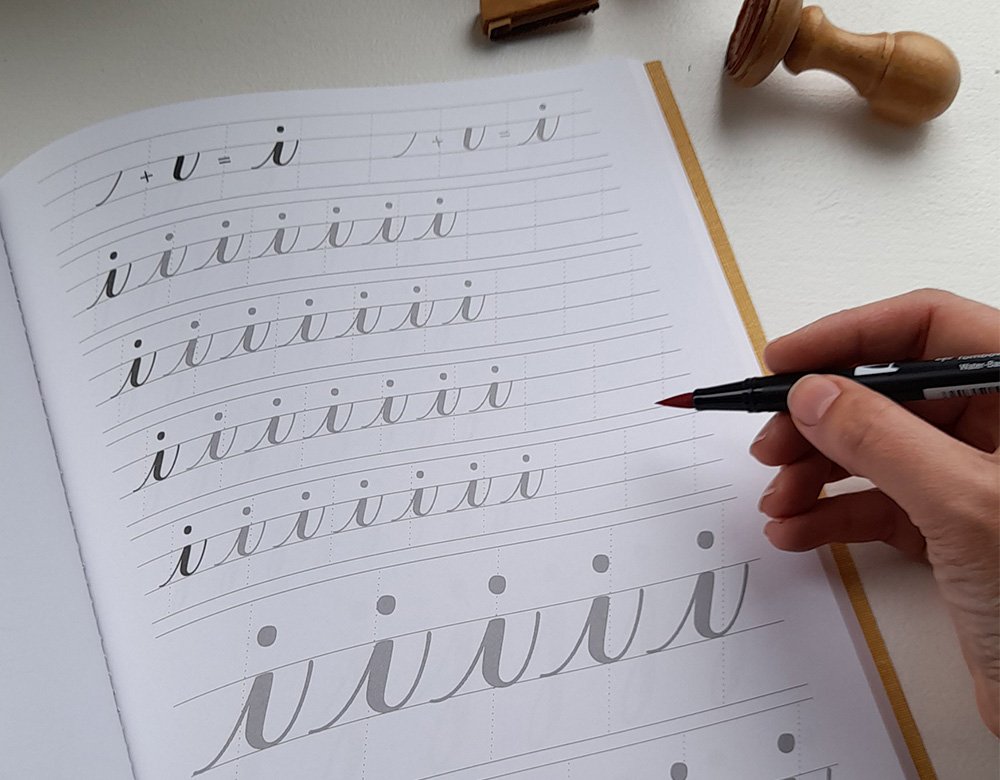 / + ı = i / + ı = i
i i i i i i i
i i i i i i i
i i i i i i i
i i i i i i i
i i i i i
Water-Ba